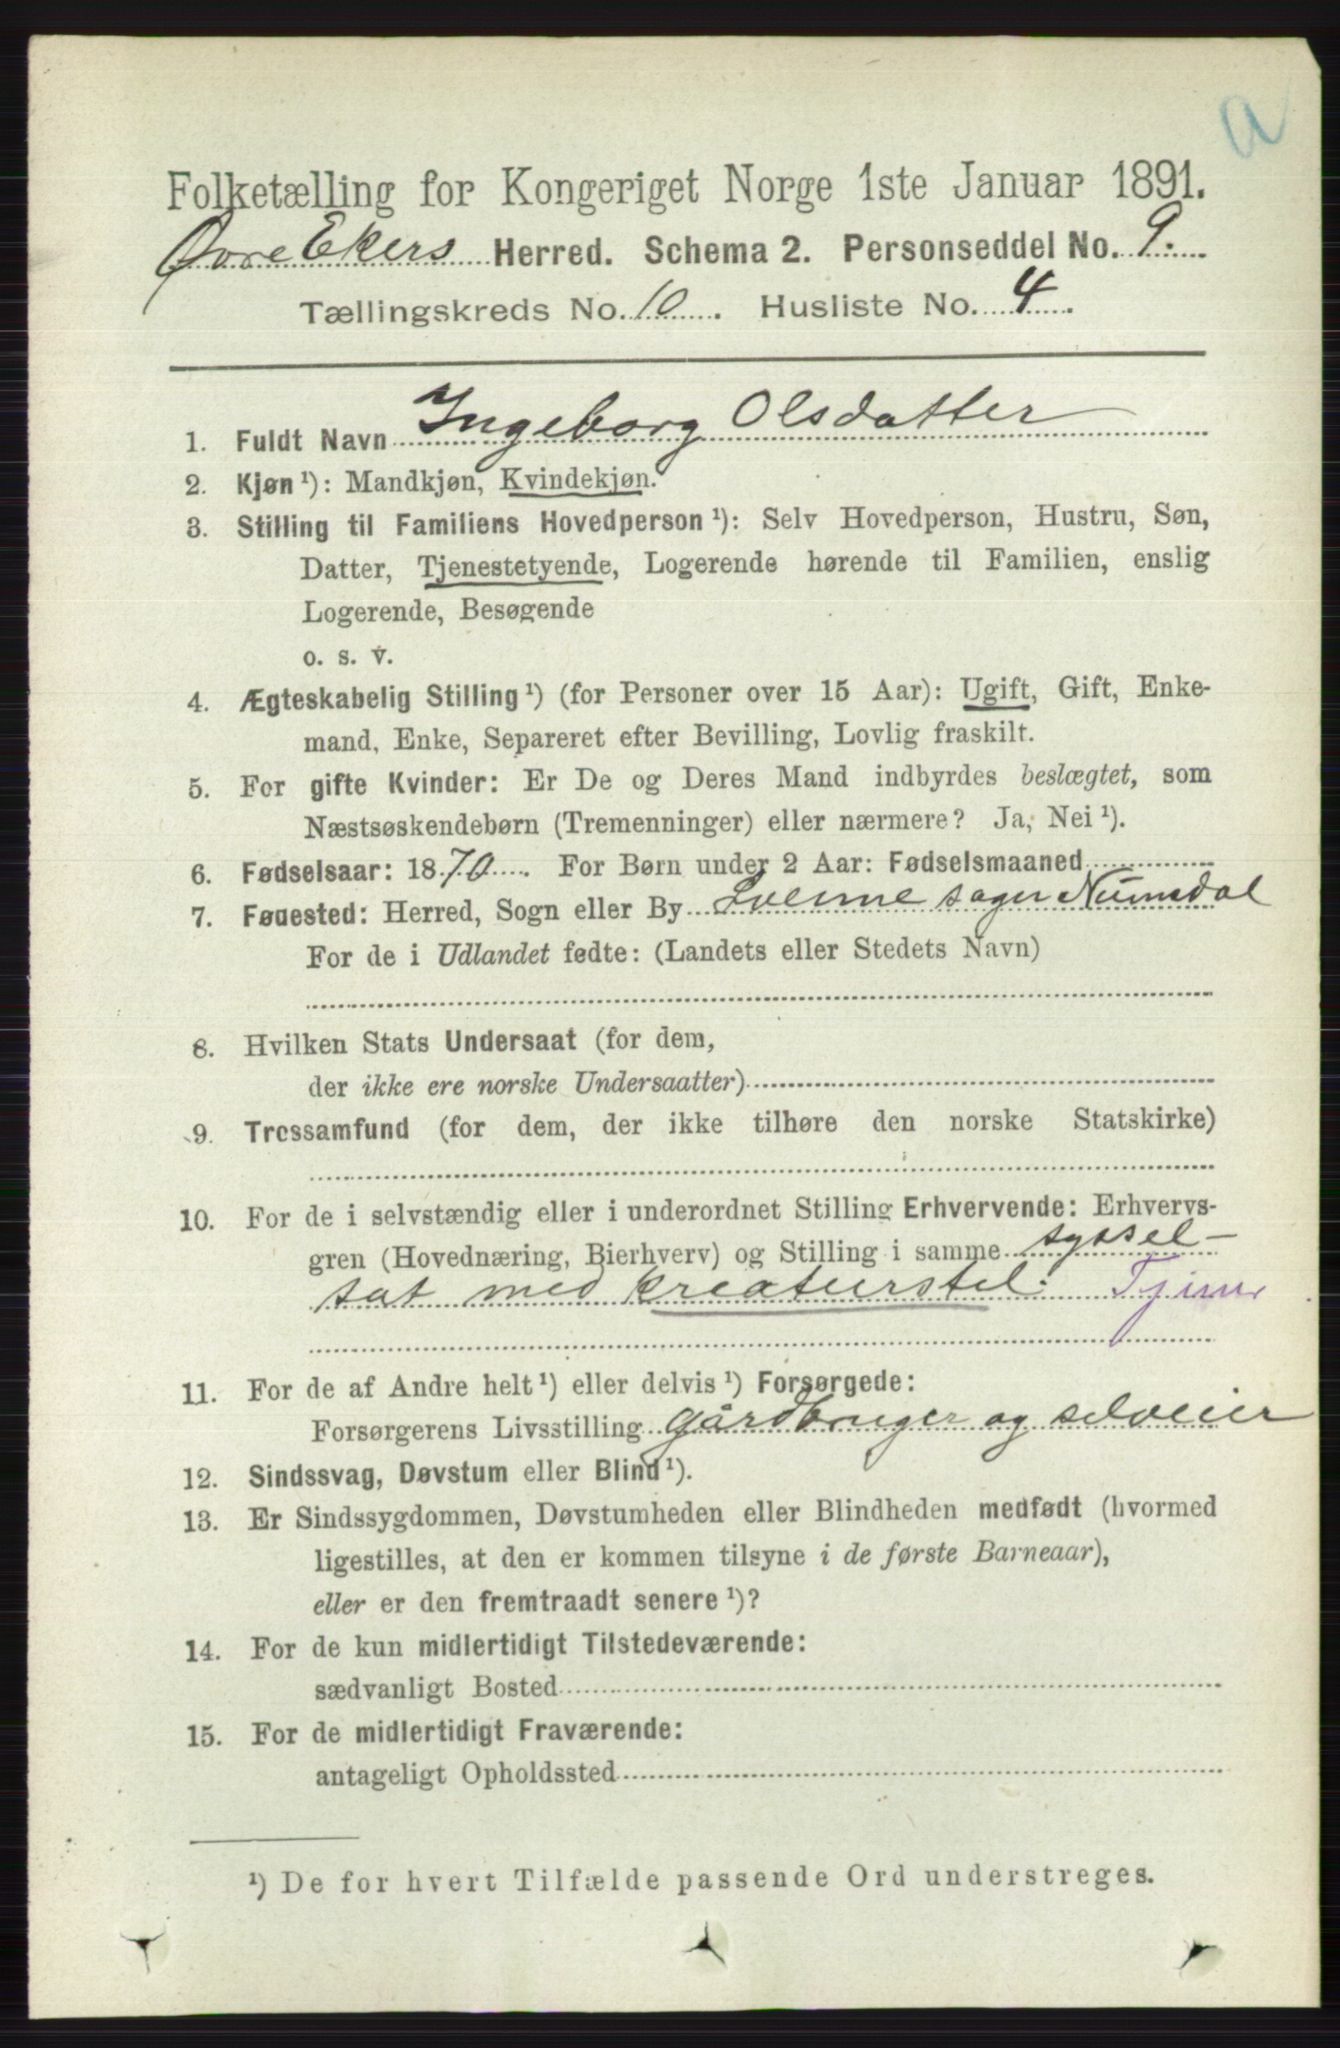 a
Folketælling for Kongeriget Norge 1ste Januar 1891.
Øvre Ekers Herred. Schema 2. Personseddel No. 9.
Tællingskreds No. 10. Husliste No. 4.
1. Fuldt Navn Ingeborg Olsdatter
2. Kjøn ¹): Mandkjøn, Kvindekjøn.
3. Stilling til Familiens Hovedperson ¹): Selv Hovedperson, Hustru, Søn,
Datter, Tjenestetyende, Logerende hørende til Familien, enslig
Logerende, Besøgende
o. s. v.
4. Ægteskabelig Stilling ¹) (for Personer over 15 Aar): Ugift, Gift, Enke-
mand, Enke, Separeret efter Bevilling, Lovlig fraskilt.
5. For gifte Kvinder: Er De og Deres Mand indbyrdes beslægtet, som
Næstsøskendebørn (Tremenninger) eller nærmere? Ja, Nei ¹).
6. Fødselsaar: 1870. For Børn under 2 Aar: Fødselsmaaned
7. Føuested: Herred, Sogn eller By Svenne sogn Numdal
For de i Udlandet fødte: (Landets eller Stedets Navn)
8. Hvilken Stats Undersaat (for dem,
der ikke ere norske Undersaatter)
9. Trossamfund (for dem, der ikke tilhøre den norske Statskirke)
10. For de i selvstændig eller i underordnet Stilling Erhvervende: Erhvervs-
gren (Hovednæring, Bierhverv) og Stilling i samme syssel-
sat med kreaturstel. Tjener
11. For de af Andre helt ¹) eller delvis ¹) Forsørgede:
Forsørgerens Livsstilling gårdbruger og selveier
12. Sindssvag, Døvstum eller Blind ¹).
13. Er Sindssygdommen, Døvstumheden eller Blindheden medfødt (hvormed
ligestilles, at den er kommen tilsyne i de første Barneaar),
eller er den fremtraadt senere ¹)?
14. For de kun midlertidigt Tilstedeværende:
sædvanligt Bosted
15. For de midlertidigt Fraværende:
antageligt Opholdssted
¹) De for hvert Tilfælde passende Ord understreges.